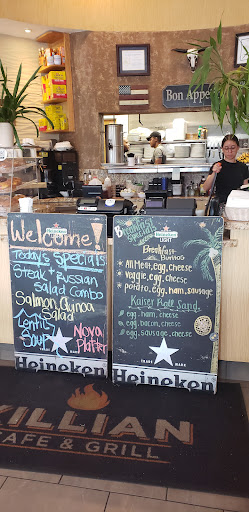 Bon Appe
Welcome!
Today's Specials
Steak & Russian
Salad Combo
Salmon, Quinoa
Salad
Lentil
Soup
Nova
Platter
Heineken
Breakfast
Specials
Heineken
LIGHT
Breakfast
Burritos
* All Meat, egg, cheese
* Veggie, egg, cheese
* potato, egg, ham, sausage
Kaiser Roll Sand.
egg, ham, cheese
egg, bacon, cheese
egg, sausage, cheese
TRADE MARK
Heineken
VILLIAN
CAFE & GRILL